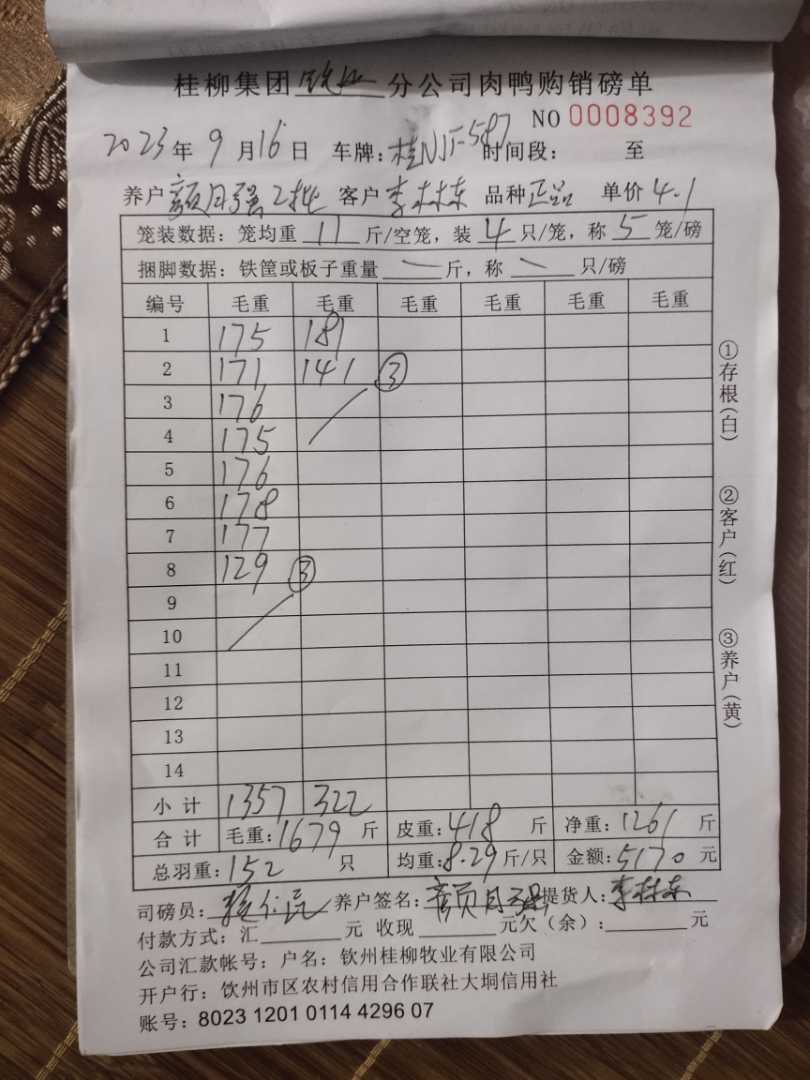 桂柳集团 钦州 分公司肉鸭购销磅单
NO 0008392
2023年9月16日 车牌:桂NJF-587 时间段: 至
养户 颜月强2批 客户 李林东 品种 正品 单价 4.1
笼装数据:笼均重 11 斤/空笼,装 4 只/笼,称 5 笼/磅
捆脚数据:铁筐或板子重量 斤,称 只/磅
编号 毛重 毛重 毛重 毛重 毛重 毛重
1 175 181
2 171 141 ③
3 176
4 175
5 176
6 178
7 177
8 129 ③
9
10
11
12
13
14
小计 1357 322
合计 毛重:1679 斤 皮重:418 斤 净重:1261 斤
总羽重:152 只 均重:8.29 斤/只 金额:5170 元
司磅员: 养户签名:颜月强 提货人:李林东
付款方式:汇 元 收现 元欠(余): 元
公司汇款帐号:户名:钦州桂柳牧业有限公司
开户行:饮州市区农村信用合作联社大垌信用社
账号:8023 1201 0114 4296 07
①存根(白)
②客户(红)
③养户(黄)